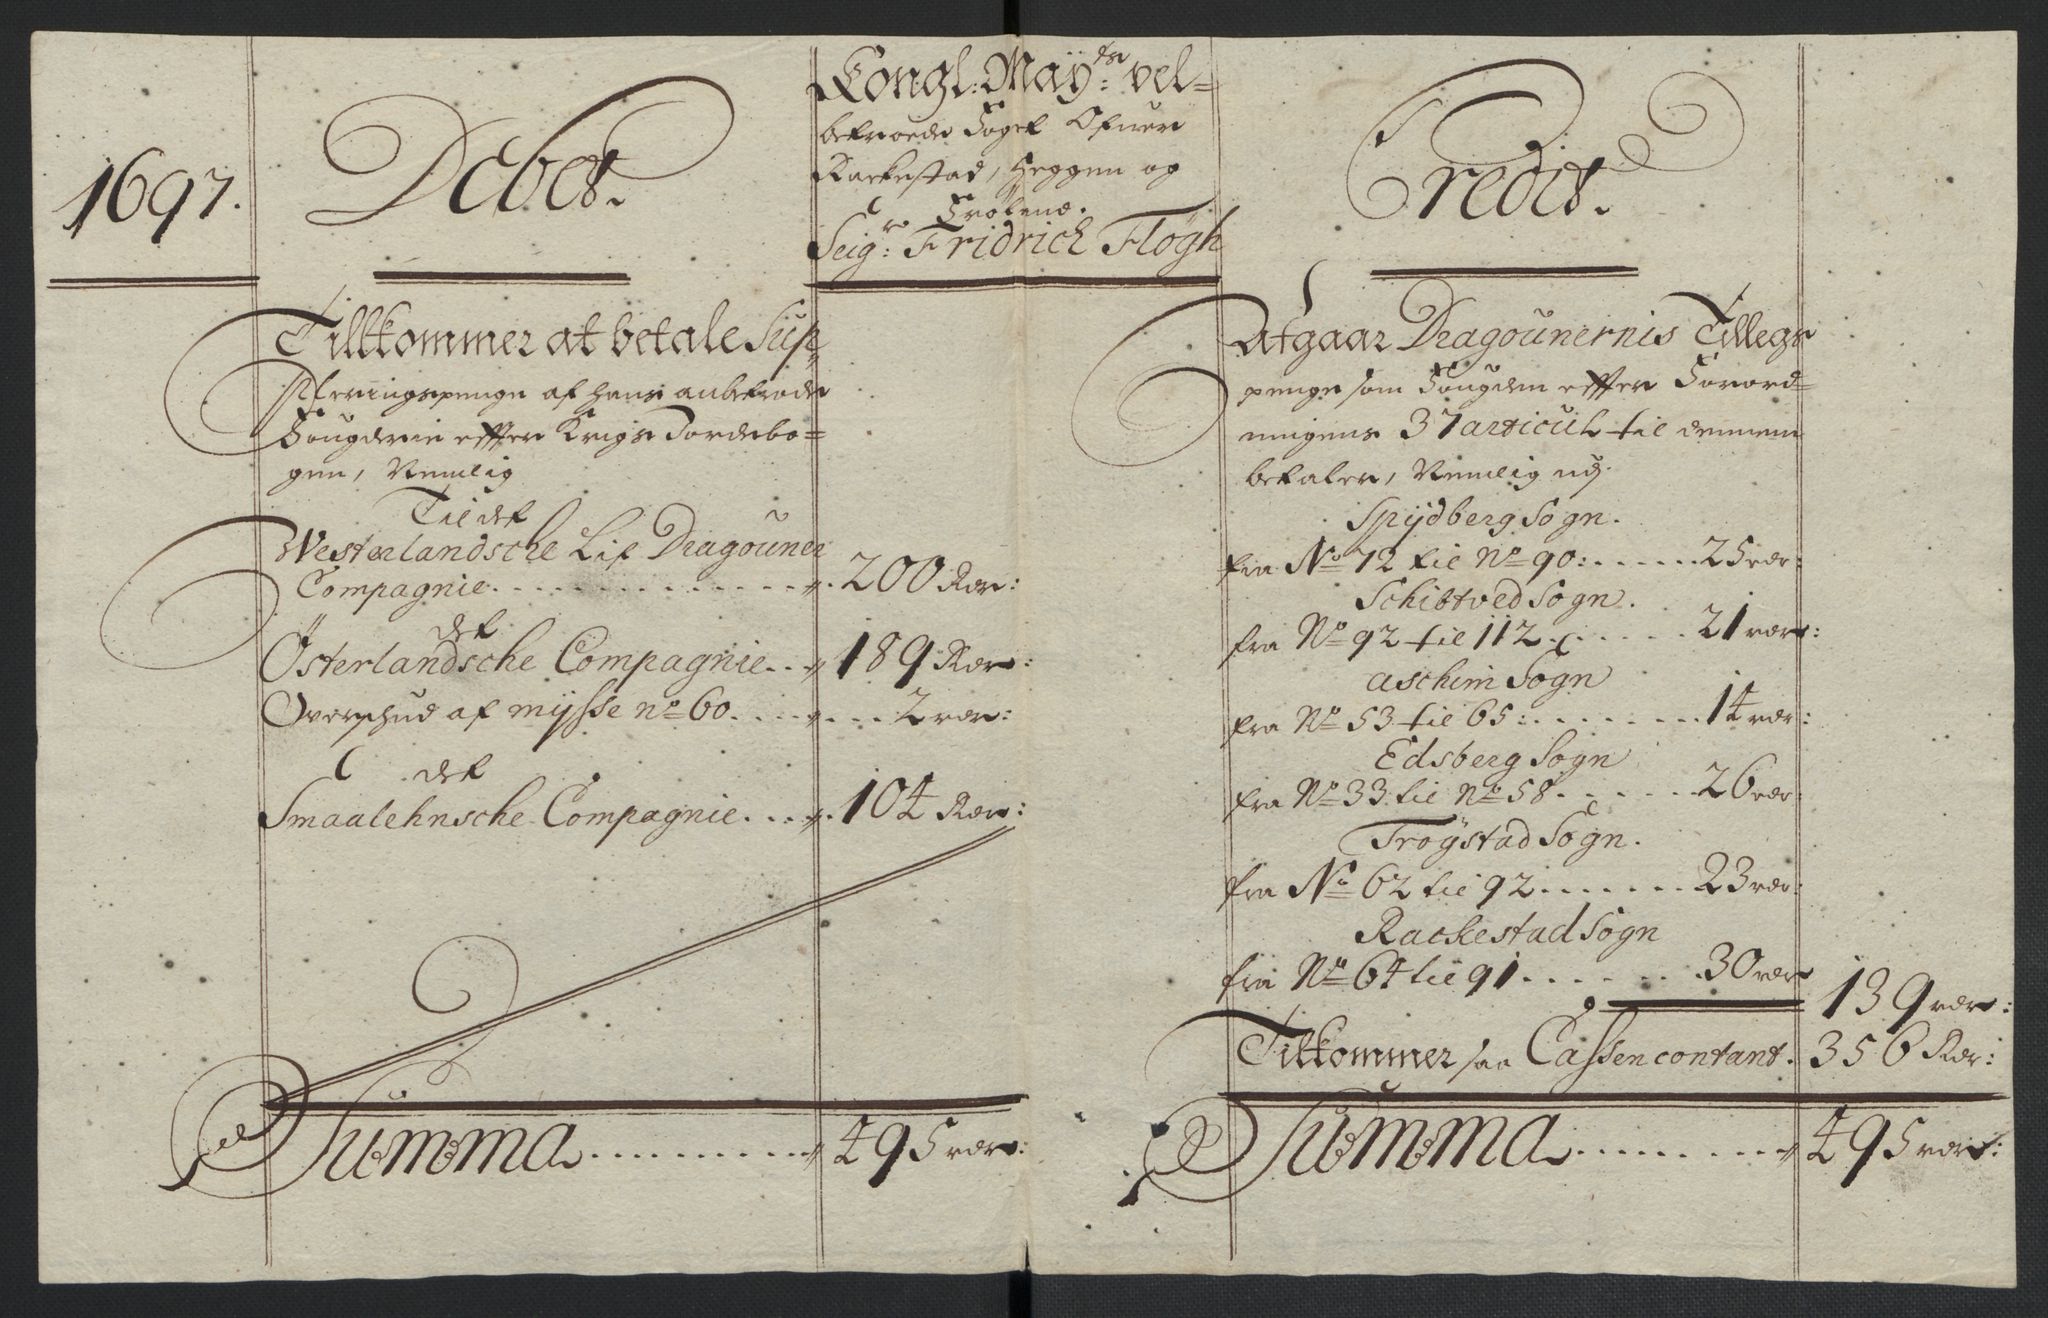 1697.
Debet.
Kongl: Mayts: vel-
betroede Foget Ofver
Rackestad, Heggen og
Frölene.
Seigr: Fridrich Flögh
Credit.
Tillkommer at betale Sup-
pleringspenge af hans anbetrode
Fougderie effter Krigs Jordebo-
gen, Nemlig
Til det
Westerlandsche Lif Dragouner
Compagnie . . . . . . . . . . . . 200 Rdr:
det
Österlandsche Compagnie . . 189 Rdr:
Overschud af mysse no 60 . . . . . . 2 rdr:
det
Smaalehnsche Compagnie . . . . 104 Rdr:
Summa . . . . . . . . . . 495 rdr:
Afgaar Dragounernis Tillegs
penge som Fougden effter Forord-
ningens 37 articul til dennem
betaler, Nemlig udj.
Spydberg Sogn.
fra No 72 til No 90: . . . . . . 25 rdr:
Schibtved Sogn.
fra No 92 til 112 . . . . . . 21 rdr:
aschim Sogn
fra No 53 til 65: . . . . . . . . 14 rdr:
Edsberg Sogn
fra No 33 til No 58 . . . . . . 26 rdr:
Tröystad Sogn.
fra No 62 til 92 . . . . . . . 23 rdr:
Rackestad Sogn
fra No 64 til 91 . . . . . . . 30 rdr
139 rdr:
Tilkommer saa Cassen contant . 356 Rdr:
Summa . . . . . . . . . 495 rdr: